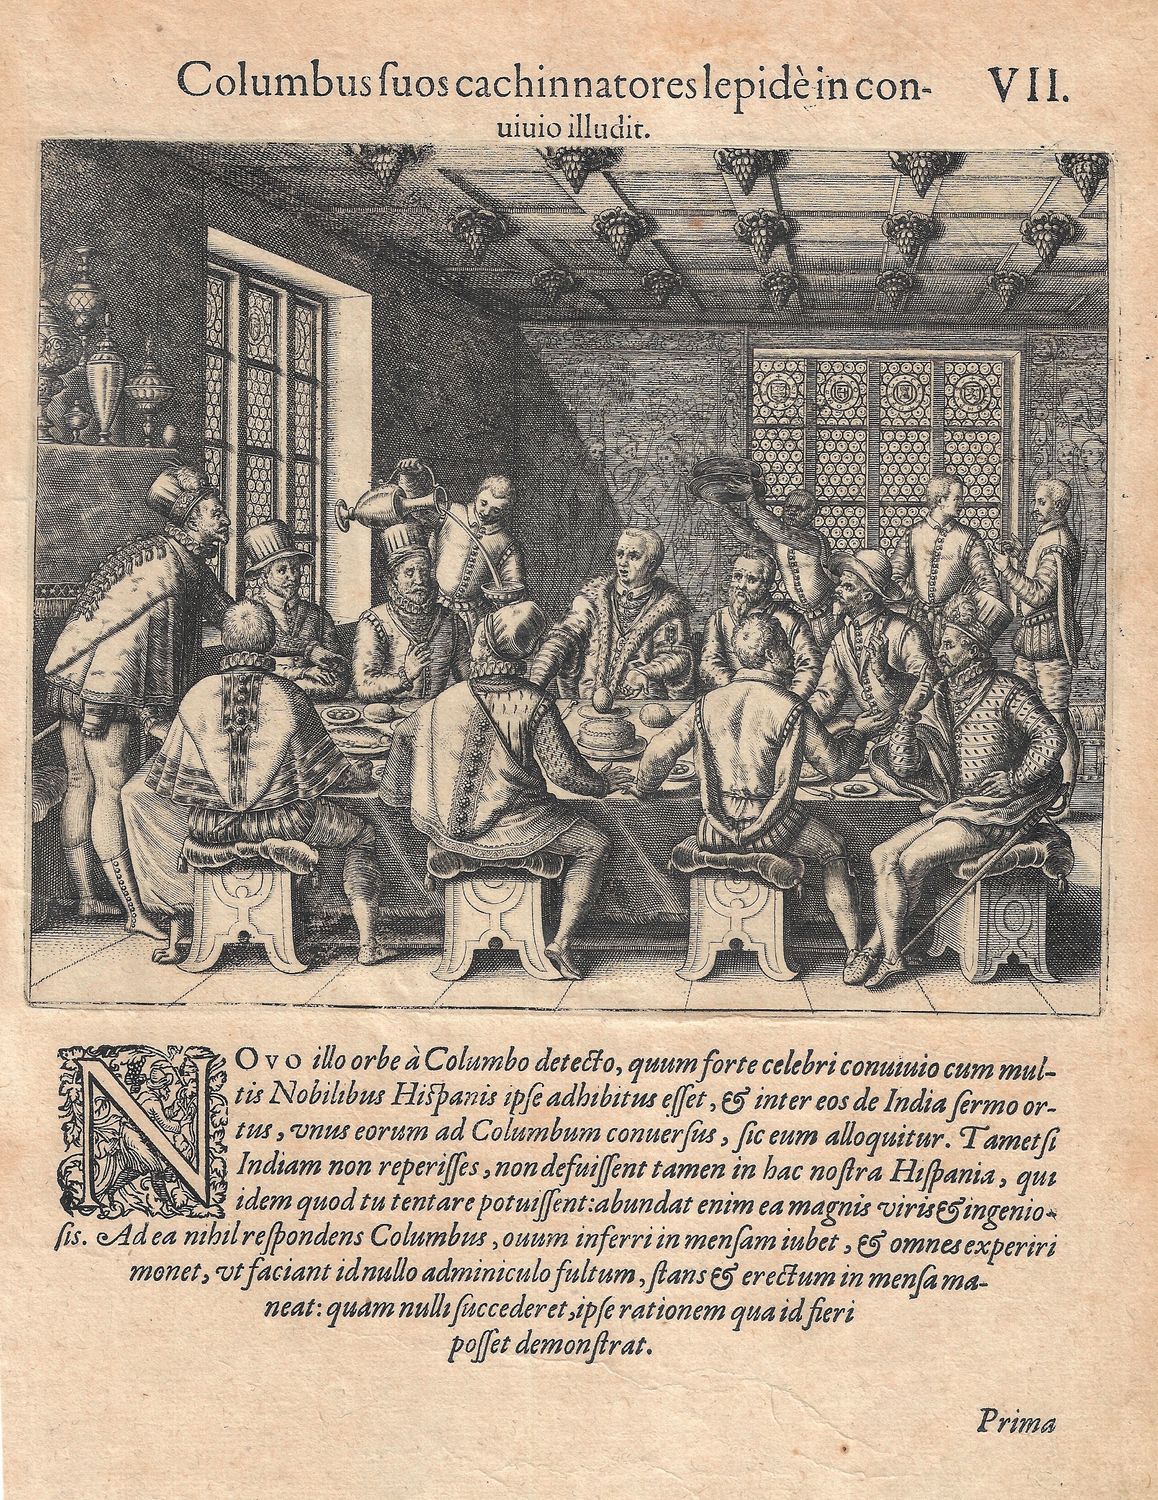 Columbus ſuos cachinnatores lepidè in con- VII.
uiuio illudit.
NOvo illo orbe à Columbo detecto, quum forte celebri conuiuio cum mul-
tis Nobilibus Hiſpanis ipſe adhibitus eſſet, & inter eos de India ſermo or-
tus, vnus eorum ad Columbum conuerſus, ſic eum alloquitur. Tametſi
Indiam non reperiſſes, non defuiſſent tamen in hac noſtra Hiſpania, qui
idem quod tu tentare potuiſſent: abundat enim ea magnis viris & ingenio-
ſis. Ad ea nihil reſpondens Columbus, ouum inferri in menſam iubet, & omnes experiri
monet, vt faciant id nullo adminiculo fultum, ſtans & erectum in menſa ma-
neat: quam nulli ſuccederet, ipſe rationem qua id fieri
poſſet demonſtrat.
Prima